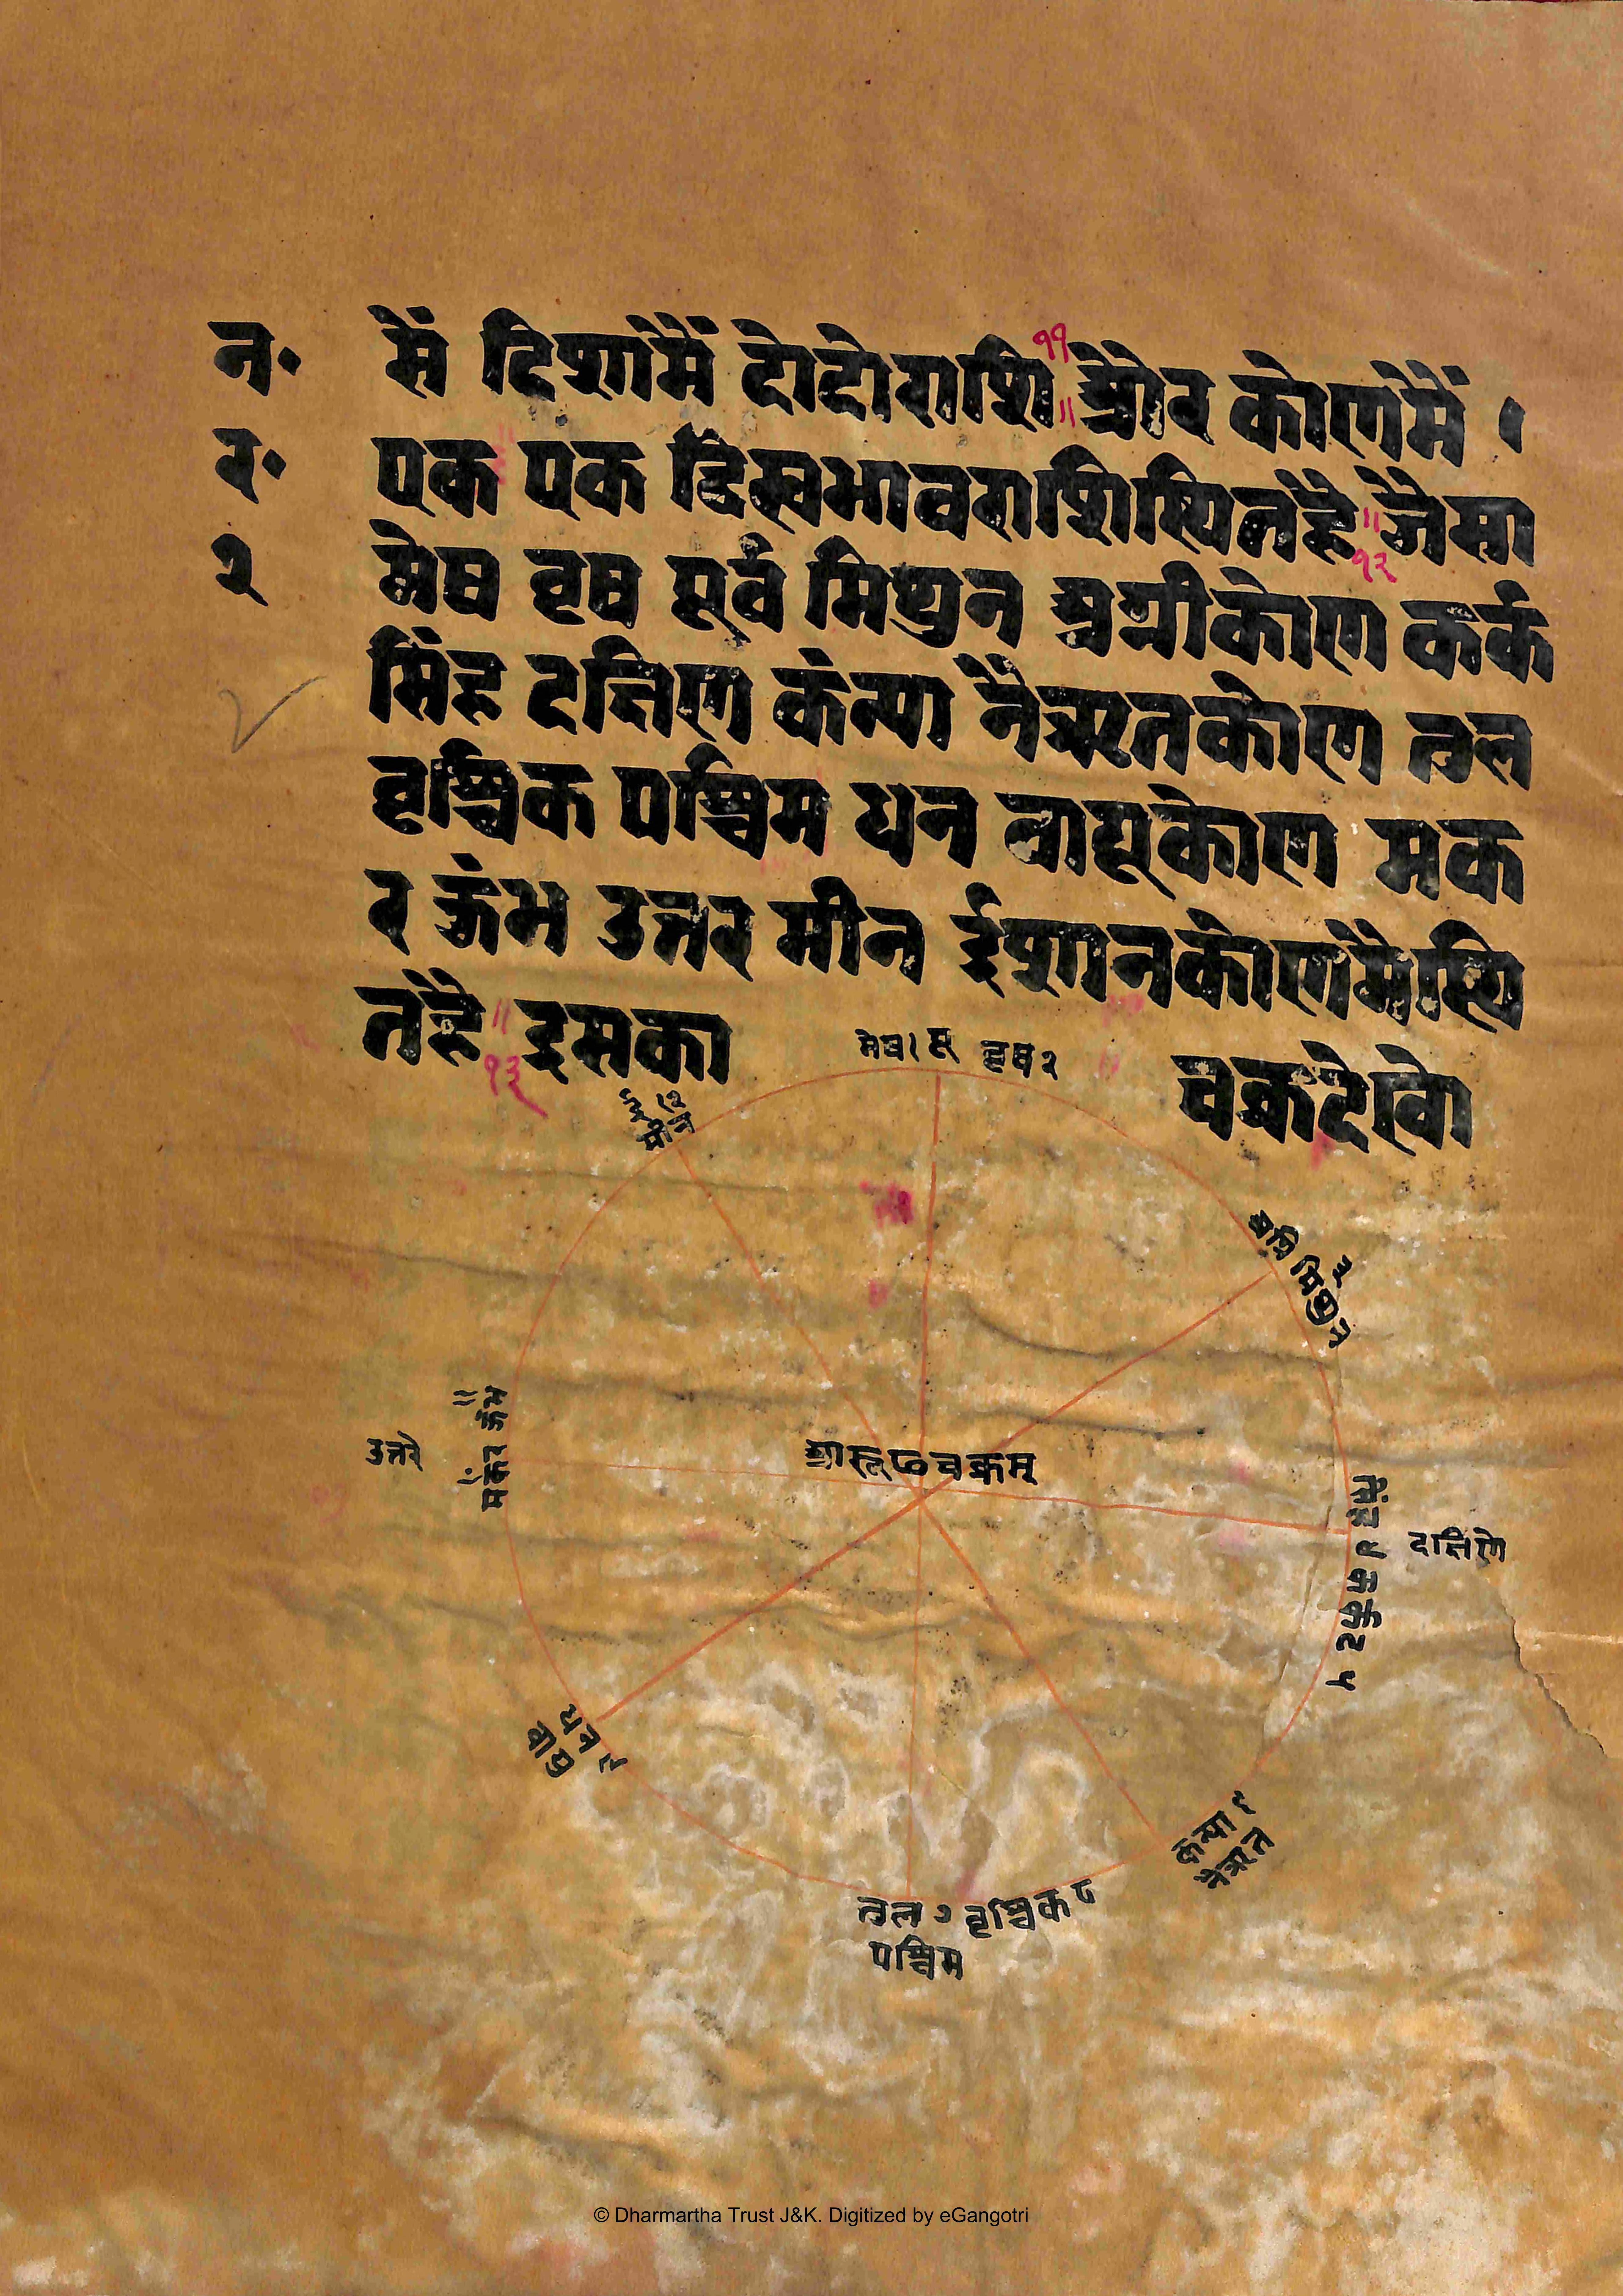 न॰ सें दिशामैं दोदोराशि ११ ॥ और कोणमैं ।
र॰ एक एक द्विस्वभावराशिस्थितहै ॥ १२ जैसा
२ मेष वृष पूर्व मिथुन अग्नीकोण कर्क
सिंह दक्षिण कंन्या नैऋतकोण तुल
वृश्चिक पश्चिम धन वायूकोण मक
र कुंभ उत्तर मीन ईशानकोणमैस्थि
तहै ॥ १३ इसका चक्रदेखो
मेष १ पू वृष २
ई १२
मीन
अग्नि मिथुन ३
उत्तरे
मकर कुंभ ११
आरूढचक्रम्
सिंह ५ कर्कट ४
दक्षिणे
धन ९
वायु
कन्या ६
नैऋत
तुल ७ वृश्चिक ८
पश्चिम
© Dharmartha Trust J&K. Digitized by eGangotri